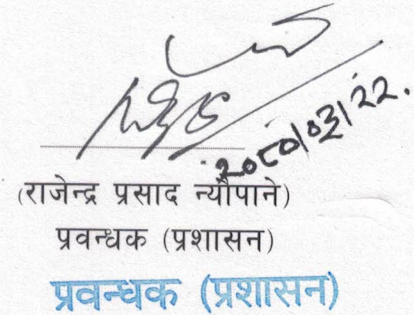 २०८०।०३।२२.
(राजेन्द्र प्रसाद न्यौपाने)
प्रवन्धक (प्रशासन)
प्रवन्धक (प्रशासन)